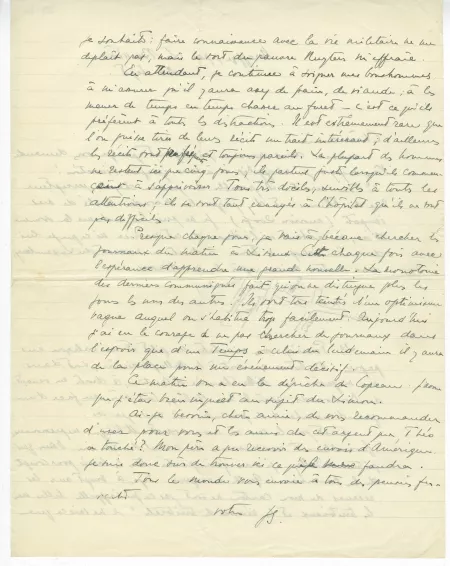 je souhaite: faire connaissance avec la vie militaire ne me
déplait pas, mais le sort du pauvre m'effraie.
En attendant, je continue à soigner mes bonshommes
à m'assurer qu'il y aura assez de pain, de viande; à les
mener de temps en temps chasser au furet – c'est ce qu'ils
préfèrent à toutes les distractions. Il est extrêmement rare que
l'on puisse tirer de leurs récits un trait intéressant; d'ailleurs
les récits sont et toujours pareils. La plupart des hommes
ne restent ici que cinq jours – ils partent juste lorsqu'ils commen-
çaient à s'apprivoiser. Tous très dociles, sensibles à toutes les
attentions; ils se sont tant ennuyés à l'hôpital qu'ils ne sont
pas difficiles.
Presque chaque jour, je vais à chercher les
journaux du matin à chaque fois avec
l'espérance d'apprendre une grande nouvelle. La monotonie
des derniers communiqués fait qu'on ne distingue plus les
jours les uns des autres. Ils sont tous teintés d'un optimisme
vague auquel on s'habitue trop facilement. Aujourd'hui
j'ai eu le courage de ne pas chercher de journaux dans
l'espoir que d'un Temps à celui du lendemain il y aura
de la place pour un événement décisif.
Ce matin on a eu la dépêche de Copeau.
que j'étais bien inquiet au sujet du
Ai-je besoin, chère amie, de vous recommander
d'user pour vous et les amis de cet argent que Théo
a touché? Mon père a pu recevoir des envois d'Amérique.
je suis donc sûr de trouver ici ce faudra.
Tous le monde vous envoie à tous des pensées
votre